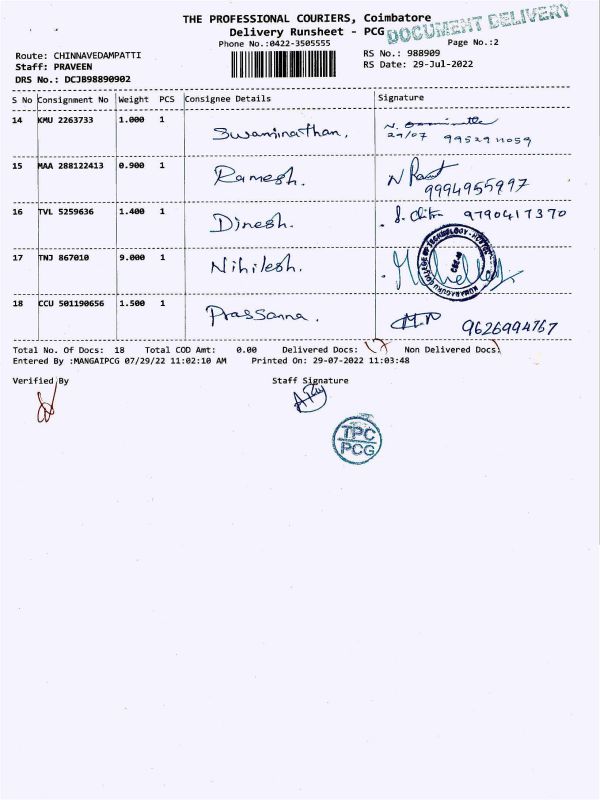 THE PROFESSIONAL COURIERS, Coimbatore
Delivery Runsheet - PCG
DOCUMENT DELIVERY
Phone No.:0422-3505555
Page No.:2
Route: CHINNAVEDAMPATTI
RS No.: 988909
Staff: PRAVEEN
RS Date: 29-Jul-2022
DRS No.: DCJ898890902
S No Consignment No Weight PCS Consignee Details Signature
14 KMU 2263733 1.000 1 Swaminathan.
29/07 9952911059
15 MAA 288122413 0.900 1 Ramesh.
9994955997
16 TVL 5259636 1.400 1 Dinesh. S. Chitra 9790417370
17 TNJ 867010 9.000 1 Nihilesh.
KUMARAGURU COLLEGE OF TECHNOLOGY
18 CCU 501190656 1.500 1 Prassanna. 9626994767
Total No. Of Docs: 18 Total COD Amt: 0.00 Delivered Docs: 17 Non Delivered Docs:
Entered By :MANGAIPCG 07/29/22 11:02:10 AM Printed On: 29-07-2022 11:03:48
Verified By Staff Signature
TPC
PCG